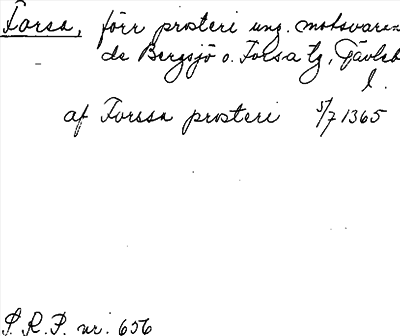 Forsa, förr prosteri ung. motsvaran
de Bergsjö o. Forsa tg, Gävleb
l.
af Forssa prosteri 5/7 1365
S.R.P. nr. 656